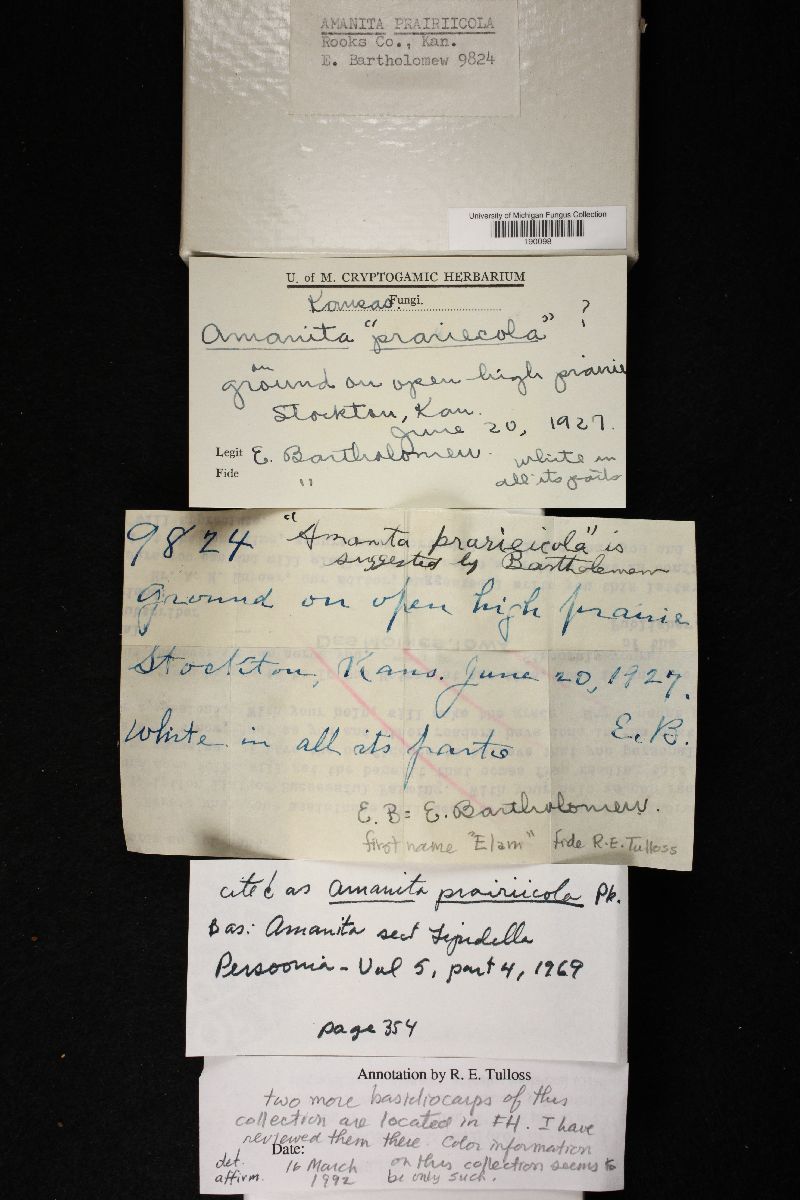 AMANITA PRAIRIICOLA
Rooks Co., Kan.
E. Bartholomew 9824
University of Michigan Fungus Collection
190098
U. of M. CRYPTOGAMIC HERBARIUM
Kansas. Fungi.
Amanita "prairiecola" ?
on
ground on open high prairie
Stockton, Kan.
June 20, 1927.
Legit E. Bartholomew.
white in
Fide "
all its parts
9824 "Amanita prarieicola" is
suggested by Bartholomew
Ground on open high prairie
Stockton, Kans. June 20, 1927.
White in all its parts E.B.
E.B = E. Bartholomew.
first name "Elam" fide R.E. Tulloss
cited as Amanita prairiicola Pk.
Bas: Amanita sect Lepidella
Persoonia - Vol 5, part 4, 1969
page 354
Annotation by R. E. Tulloss
two more basidiocarps of this
collection are located in FH. I have
reviewed them there. Color information
Date:
det. 16 March on this collection seems to
affirm. 1992 be only such.